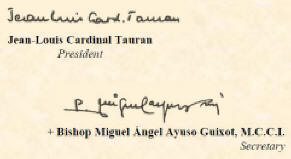 Jean Louis Card. Tauran
Jean-Louis Cardinal Tauran
President
+ Bishop Miguel Ángel Ayuso Guixot, M.C.C.I.
Secretary